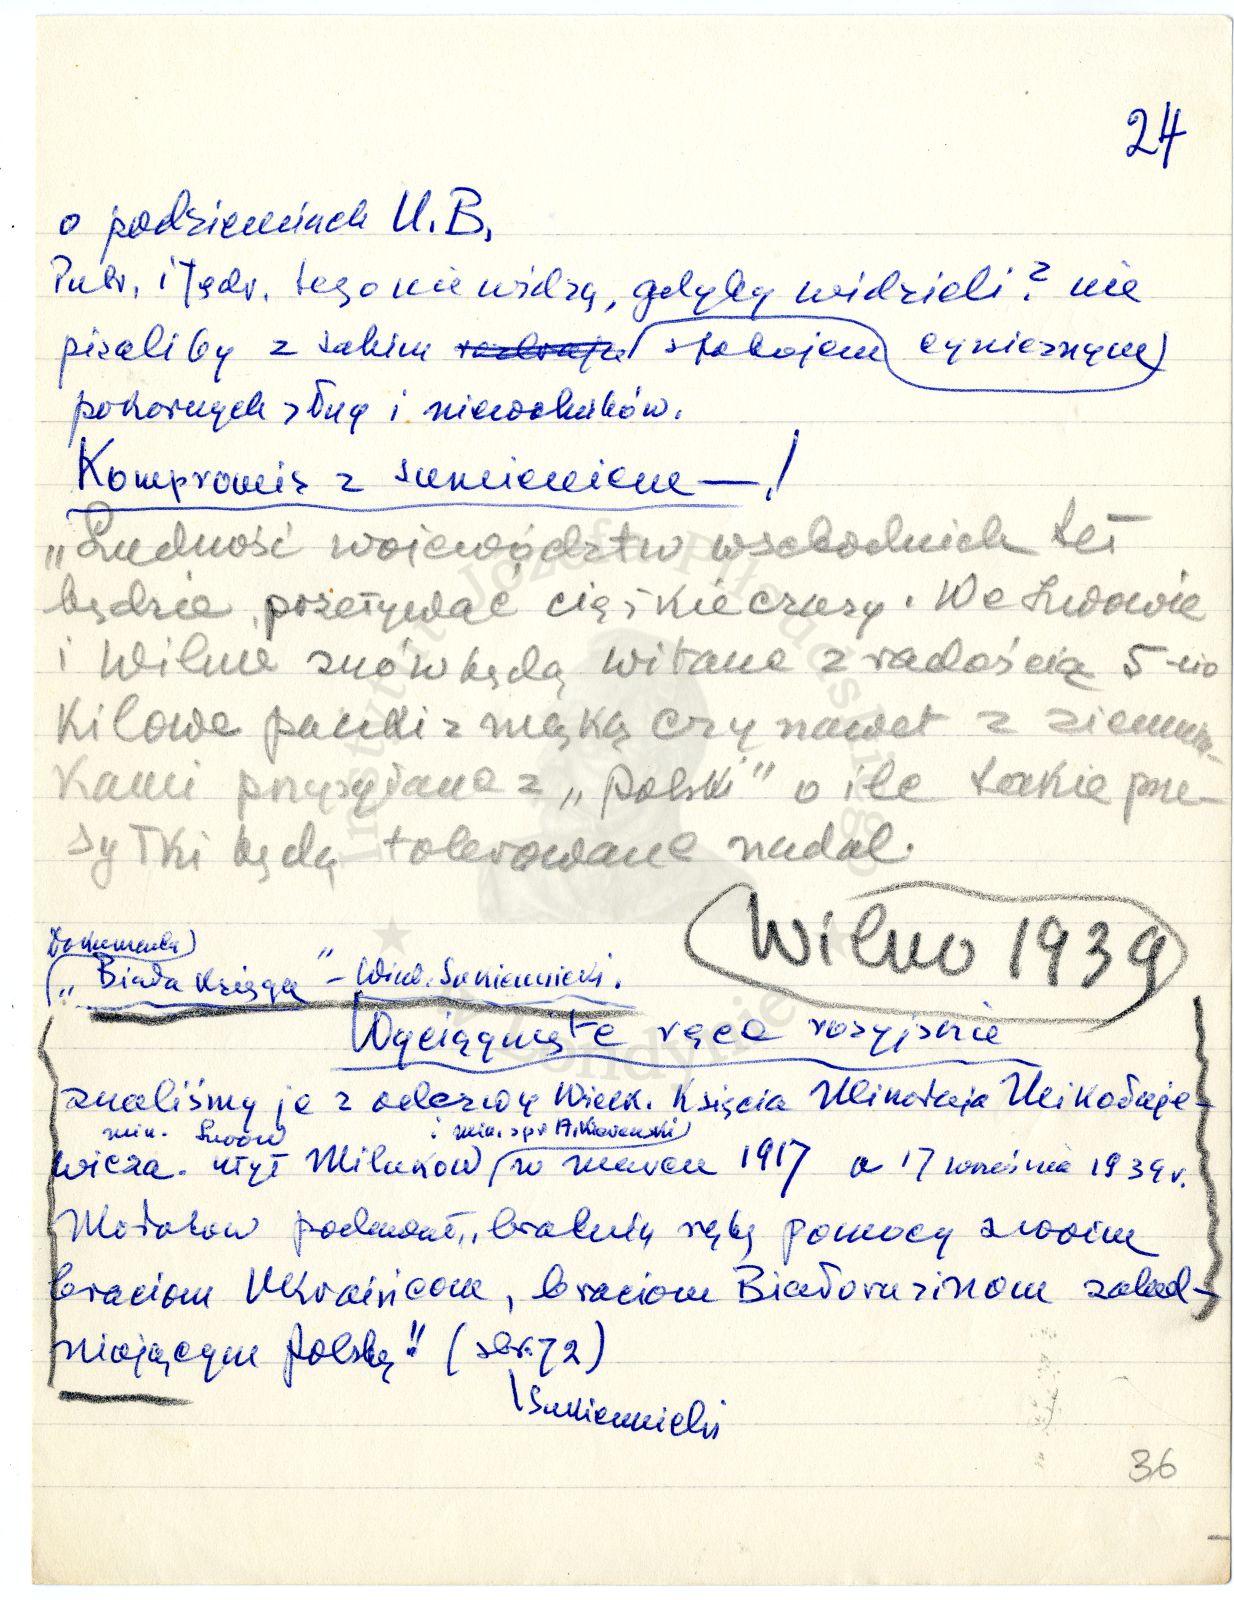 24
o podziemiach U.B.
Putr. i Jędr. tego nie widzą, gdyby widzieli? nie
pisaliby z takim spokojem cynicznym
pokornych sług i niewolników.
Kompromis z sumieniem —!
„Ludność województw wschodnich też
będzie przeżywać ciężkie czasy. We Lwowie
i Wilnie znów będą witane z radością 5-cio
kilowe paczki z mąką czy nawet z ziemnia-
kami przysyłane z „Polski” o ile takie prze-
syłki będą tolerowane nadal.
Wilno 1939
Dokumenty
„Biała Księga” – Wikt. Sukiennicki.
Wyciągnięte ręce rosyjskie
znaliśmy je z odezwy Wielk. Księcia Mikołaja Mikołaje-
min. i min. spr A. Kierenski
wicza. Milukow w marcu 1917 a 17 września 1939 r.
Mołotow podawał „bratnią rękę pomocy swoim
braciom Ukraińcom, braciom Białorusinom zalud-
niającym Polskę” (str. 72)
Sukiennicki
36
Instytut Józefa Piłsudskiego
w Londynie